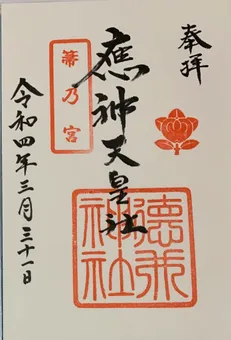 奉拝
應神天皇社
箒乃宮
德
神社
令和四年三月三十一日